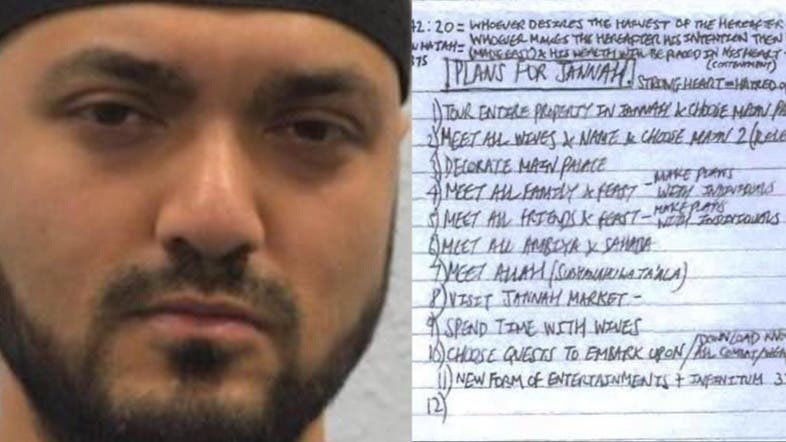 42:20 = WHOEVER DESIRES THE HARVEST OF THE HEREAFTER
WHOEVER MAKES THE HEREAFTER HIS INTENTION THEN
(MADE EASY) & HIS WEALTH WILL BE PLACED IN HIS HEART
(CONTENTMENT)
PLANS FOR JANNAH.
STRONG HEART = HATRED OF
1) TOUR ENTIRE PROPERTY IN JANNAH & CHOOSE MAIN
2) MEET ALL WIVES & NAME & CHOOSE MAIN 2
3) DECORATE MAIN PALACE
4) MEET ALL FAMILY & FEAST - MAKE PLANS WITH INDIVIDUALS
5) MEET ALL FRIENDS & FEAST - MAKE PLANS WITH INDIVIDUALS
6) MEET ALL ANBIYA & SAHABA
7) MEET ALLAH (SUBHANAHU WA TA'ALA)
8) VISIT JANNAH MARKET -
9) SPEND TIME WITH WIVES
10) CHOOSE QUESTS TO EMBARK UPON / DOWNLOAD
11) NEW FORM OF ENTERTAINMENTS + INFINITUM
12)